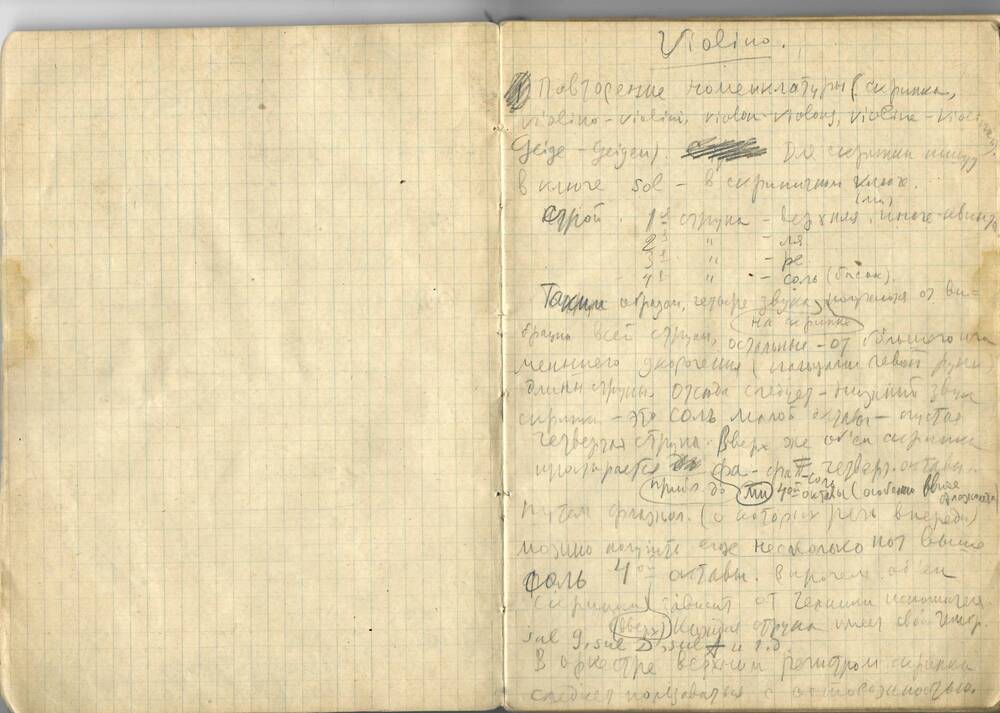 Violino.
Повторение номенклатуры (скрипка,
violino – violini, violon – violons, violine –
Geige – Geigen). Для скрипки пишут
в ключе sol – в скрипичном ключе.
(ми)
Строй. 1я струна – верхняя, иначе – квинта
2я " – ля
3я " – ре
4я " – соль (басок).
Таким образом, четыре звука получаются от ви-
на скрипке
брации всей струны, остальные – от большего или
меньшего укорочения (пальцами левой руки)
длины струны. Отсюда следует – низший звук
скрипки – это соль малой октавы – пустая
четвертая струна. Вверх же об'ем скрипки
простирается до фа – соль четверт. октавы.
прибл. до ми 4ой октавы (особенно выше
флажолеты)
Путем флажол. (о которых речь впереди)
можно получить еще несколько нот выше
соль 4ой октавы. Впрочем об'ем
скрипки зависит от техники исполнителя.
(вверх) Каждая струна имеет свой тембр.
sul g, sul D, sul A и т.д.
В оркестре верхним регистром скрипки
следует пользоваться с осторожностью.